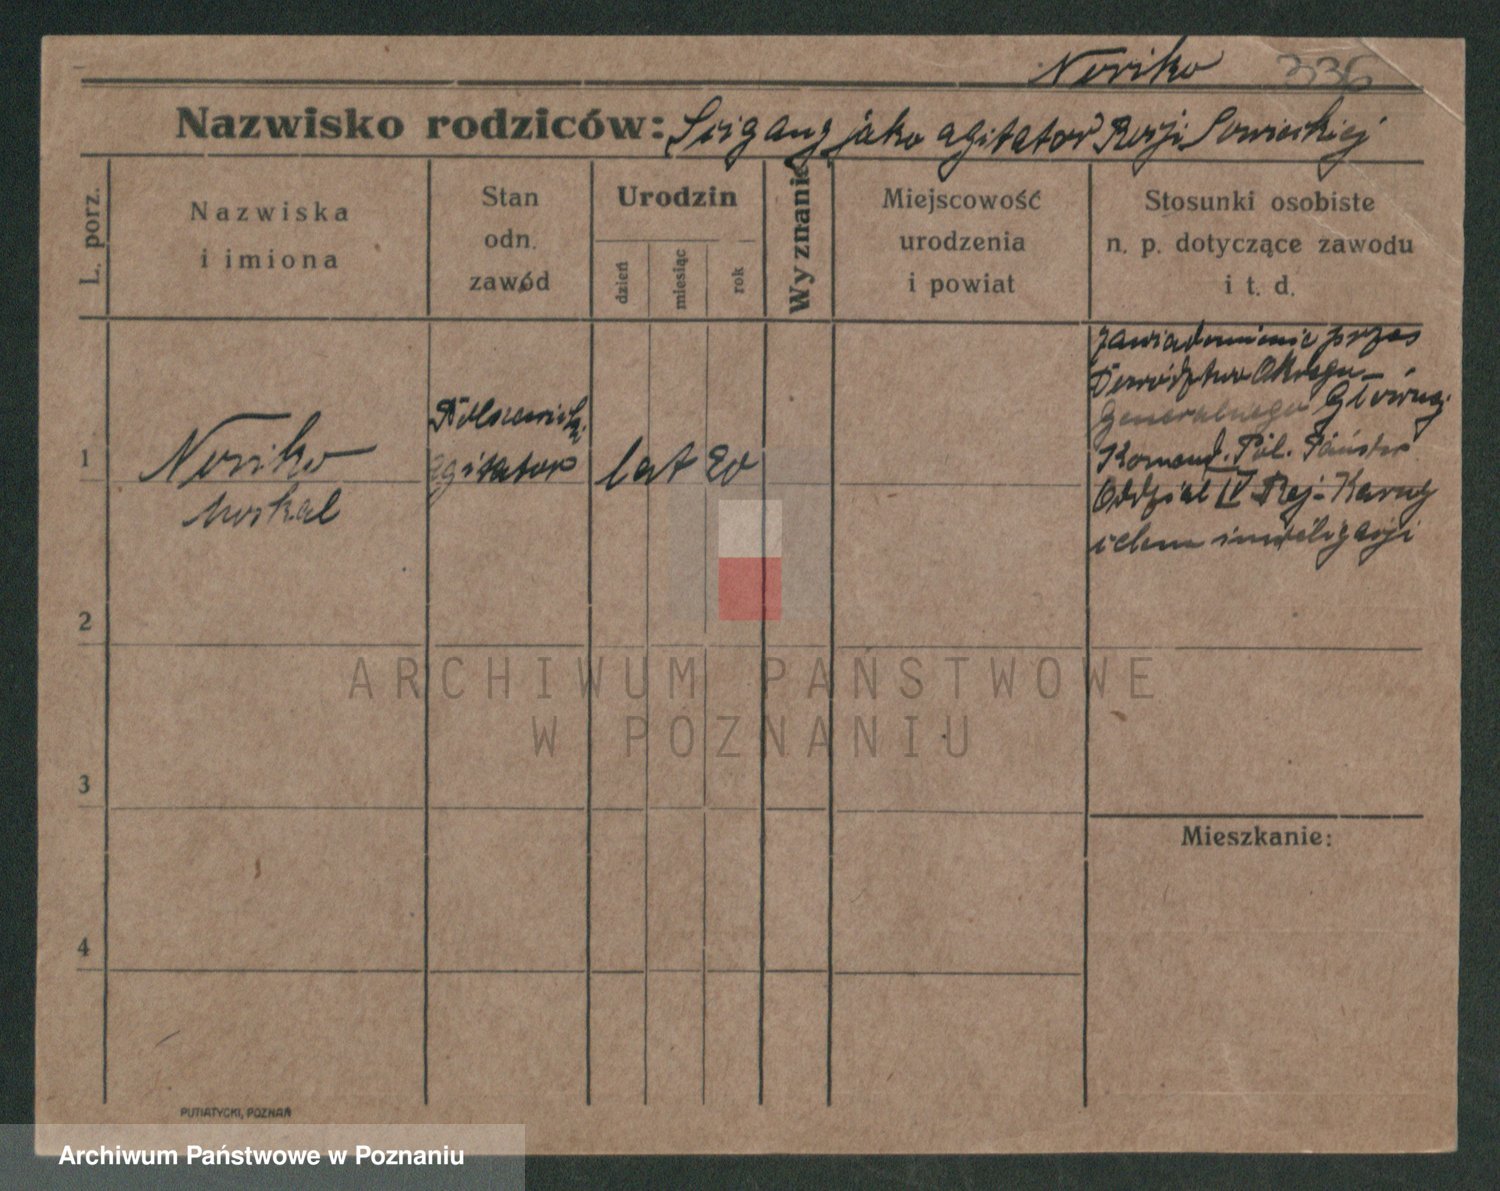 Noriko 336
Nazwisko rodziców: Ścigany jako agitator Rosji Sowieckiej
L. porz.
Nazwiska
i imiona
Stan
odn.
zawód
Urodzin
dzień
miesiąc
rok
Wyznanie
Miejscowość
urodzenia
i powiat
Stosunki osobiste
n. p. dotyczące zawodu
i t. d.
1
Noriko
Moskal
agitator
lat 20
zawiadomienie przez
Dowództwo Okręgu
Generalnego Główną
Komend. Pol. Państw.
Oddział IV Rej-Karny
celem inwiligacji
2
3
4
Mieszkanie:
ARCHIWUM PAŃSTWOWE
W POZNANIU
PUTIATYCKI, POZNAŃ
Archiwum Państwowe w Poznaniu